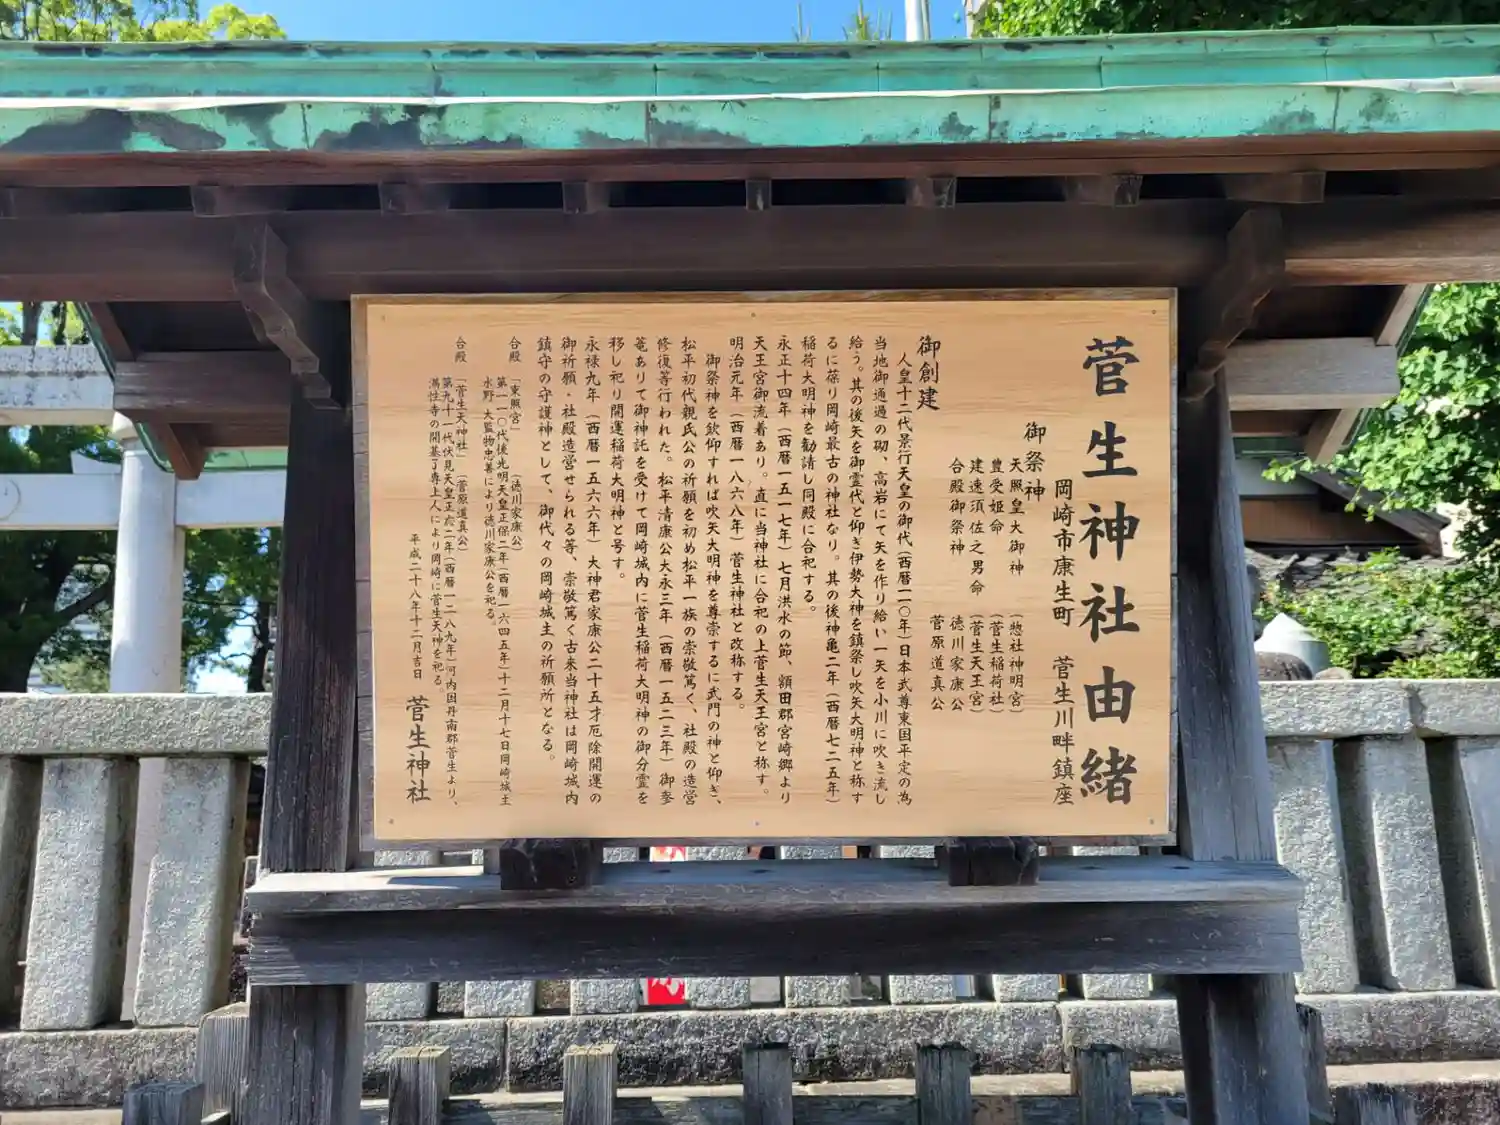 菅生神社由緒
岡崎市康生町　菅生川畔鎮座
御祭神
天照皇大御神　(惣社神明宮)
豊受姫命　(菅生稲荷社)
建速須佐之男命　(菅生天王宮)
合殿御祭神　徳川家康公
菅原道真公
御創建
人皇十二代景行天皇の御代(西暦一一〇年)日本武尊東国平定の為
当地御通過の砌、高岩にて矢を作り給い一矢を小川に吹き流し
給う。其の後矢を御霊代と仰ぎ伊勢大神を鎮祭し吹矢大明神と称す
るに葆り岡崎最古の神社なり。其の後神亀二年(西暦七二五年)
稲荷大明神を勧請し同殿に合祀する。
永正十四年(西暦一五一七年)七月洪水の節、額田郡宮崎郷より
天王宮御流着あり。直に当神社に合祀の上菅生天王宮と称す。
明治元年(西暦一八六八年)菅生神社と改称する。
御祭神を欽仰すれば吹矢大明神を尊崇するに武門の神と仰ぎ、
松平初代親氏公の祈願を初め松平一族の崇敬篤く、社殿の造営
修復等行われた。松平清康公大永三年(西暦一五二三年)御参
篭ありて御神託を受けて岡崎城内に菅生稲荷大明神の御分霊を
移し祀り開運稲荷大明神と号す。
永禄九年(西暦一五六六年)大神君家康公二十五才厄除開運の
御祈願・社殿造営せられる等、崇敬篤く古来当神社は岡崎城内
鎮守の守護神として、御代々の岡崎城主の祈願所となる。
合殿　「東照宮」　(徳川家康公)
第一一〇代後光明天皇正保二年(西暦一六四五年)十二月十七日岡崎城主
水野大監物忠善により徳川家康公を祀る。
合殿　「菅生天神社」　(菅原道真公)
第九十一代伏見天皇正応二年(西暦一二八九年)河内国丹南郡菅生より、
満性寺の開基了専上人により岡崎に菅生天神を祀る。
平成二十八年十二月吉日　菅生神社